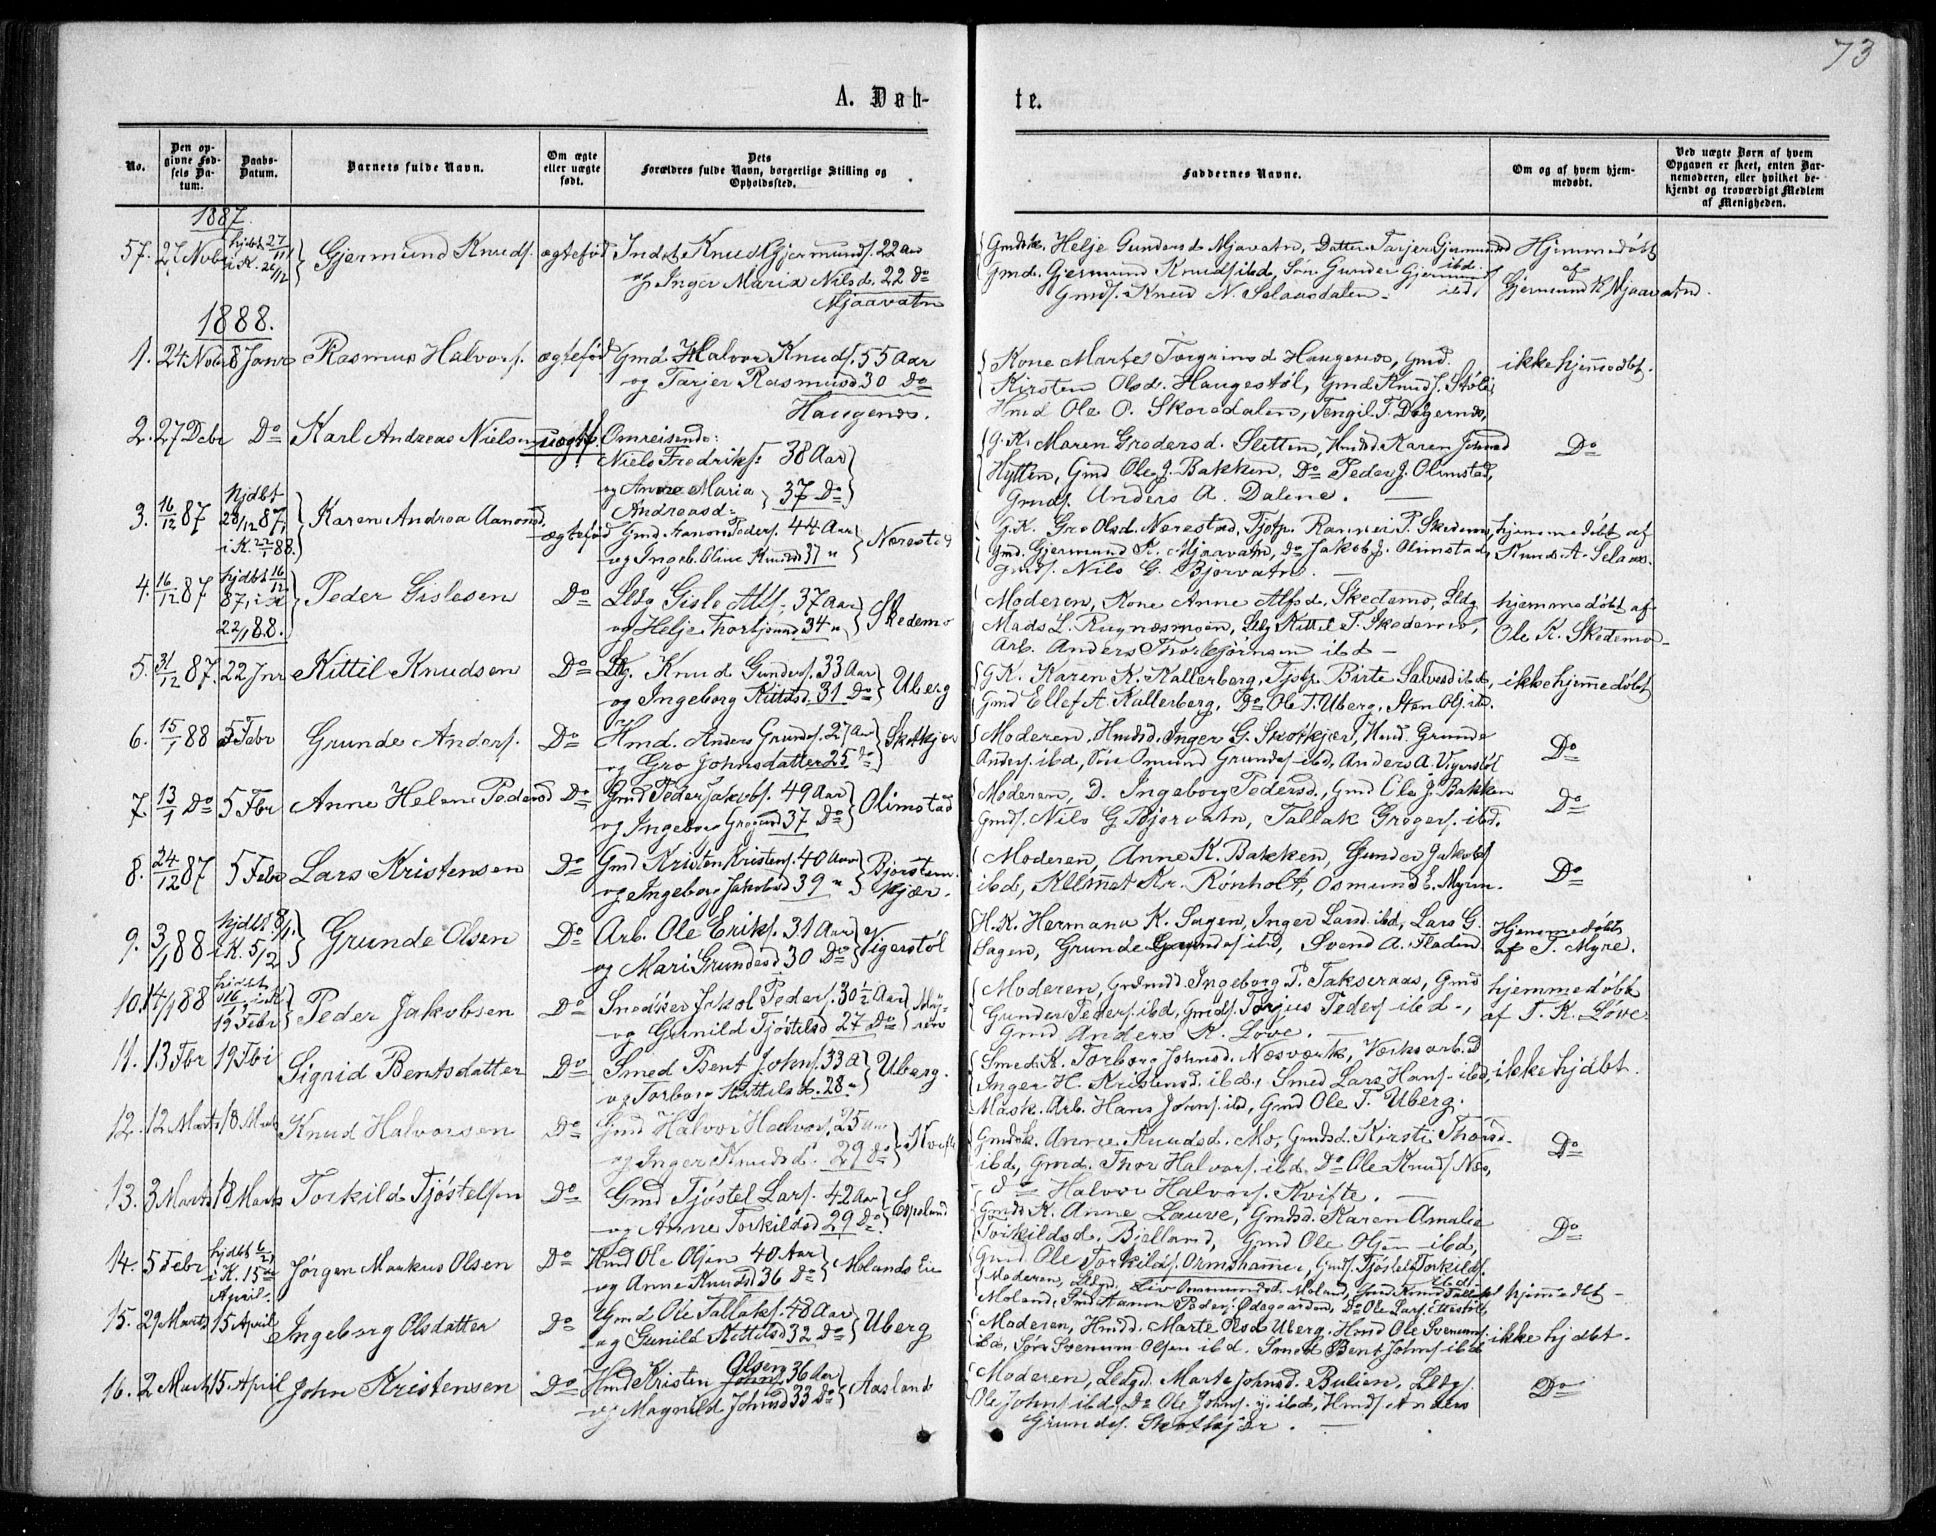 73
A. Døb-
te.
No.
Den op-
givne Fød-
sels Da-
tum.
Daabs-
Datum.
Barnets fulde Navn.
Om ægte
eller uægte
født.
Dets
Forældres fulde Navn, borgerlige Stilling og
Opholdssted.
Faddernes Navne.
Om og af hvem hjem-
medøbt.
Ved uægte Børn af hvem
Opgaven er skeet, enten Bar-
nemoderen, eller hvilket be-
kjendt og troværdigt Medlem
af Menigheden.
1887.
57. 27 Novbr hjdbt 27/11 i K. 26/12 Gjermund Knuds. ægtefød Indst Knud Gjermunds. 22 Aar
og Inger Maria Nilsd. 22 Do
Mjaavatn
Gmdsk. Helje Gundersd Mjaavatn, Datter Tarjer Gjermunsd ibd.
Gmd. Gjermund Knuds ibd, Søn Gunder Gjermunds ibd,
Gmds. Knud N. Selaasdalen.
Hjemmedøbt
af
Gjermund K. Mjaavatn.
1888.
1. 24 Novbr 8 Janr Rasmus Halvors. ægtefød Gmd. Halvor Knuds. 55 Aar
og Tarjer Rasmusd 30 Do
Haugenes.
Kone Martes Torgrimsd Haugenes, Gmd.
Kirsten Olsd. Haugestøl, Gmd Knud J. Støle,
Hmd Ole O. Skoredalen, Tengil T. Døgernes,
ikke hjemmedøbt.
2. 27 Debr Do Karl Andreas Nielsen uægtf. Omreisende:
Niels Fredriks. 38 Aar
og Anne Maria Andreasd. 37 Do
G. K. Maren Grodersd. Sletten, Hmdsd. Karen Johnsd
Hytten, Gmd Ole J. Bakken, Do Peder J. Olimstad,
Gmds. Anders A. Dalene.
Do
3. 16/12 87 hjdbt 28/12 87, i K. 22/1 88. Karen Andrea Aanonsd. ægtefød Gmd Aanon Peders. 44 Aar
og Ingeb. Oline Knudsd 37 " Nærestad
G. K. Gro Olsd. Nærestad, Tjstp. Rannei P. Skedemo,
Gmd. Gjermund K. Mjaavatn, Do Jakob J. Olimstad,
Gmds. Nils G. Bjorvatn.
hjemmedøbt af
Knud A. Selaas.
4. 16/12 87 hjdbt 16/12 87, i K 22/1 88. Peder Gislesen Do Ldg Gisle Alfs. 37 Aar
og Helje Thorbjørnsd 34 " Skedemo
Moderen, Kone Anne Alfsd. Skedemo, Ldg
Mads L. Rugnæsmoen, Ldg Kittil T. Skedemo,
Arb. Anders Thorbjørnsen ibd
hjemmedøbt af
Ole K. Skedemo
5. 31/12 87. 22 Jnr Kittil Knudsen Do Ldg. Knud Gunders. 33 Aar
og Ingeborg Kittilsd. 31 Do Uberg
G K. Karen K. Kallerberg, Tjstp. Birte Salvesd ibd,
Gmd Ellef A. Kallerberg, Do Ole T. Uberg, Sten Ols. ibd.
ikke hjemmedøbt
6. 15/1 88 5 Febr Grunde Anders. Do Hmd. Anders Grundes. 27 Aar
og Gro Johnsdatter 25 Do Skotkjær
Moderen, Hmdsd. Inger G. Skotkjær, Hmd. Grunde
Anders. ibd, Søn Omund Grundes ibd, Anders A. Vigerstøl
Do
7. 13/1 Do 5 Fbr Anne Helene Pedersd Do Gmd Peder Jakobs. 49 Aar
og Ingeborg Gregersd 37 Do Olimstad
Moderen, D. Ingeborg Pedersd., Gmd Ole J. Bakken
Gmds. Nils G Bjorvatn, Tallak Gregers. ibd.
Do
8. 24/12 87 5 Febr Lars Kristensen Do Gmd Kristen Kristens. 40 Aar
og Ingeborg Jakobsd 39 " Bjørsten-
kjær.
Moderen, Anne K. Bakken, Gunder Jakobs
ibd, Klemet Kr. Rønholt, Osmund E. Myren.
Do
9. 3/1 88 hjdbt 8/1. i K. 5/2 Grunde Olsen Do Arb. Ole Eriks. 31 Aar
og Mari Grundesd 30 Do Vigerstøl
H. K. Hermana K. Sagen, Inger Larsd. ibd, Lars G.
Sagen, Grunde Grundes ibd, Svend A. Fladen
Hjemmedøbt
af T. Myre.
10. 14/1 88 hjdbt 16/1 i K 19 Febr Peder Jakobsen Do Snedker Jakob Peders. 30½ Aar
og Gunild Tjøstelsd 27 Do
Moderen, Grdmsd Ingeborg P. Takseraas, Gmd
Gunder Peders. ibd, Gmds. Torjus Peders ibd,
Gmd Anders K. Løve.
hjemmedøbt
af T. K. Løve.
11. 13 Fbr 19 Fbr Sigrid Bentsdatter Do Smed Bent Johns. 33 A
og Torborg Kittilsd. 28 " Uberg.
Smed. K. Torborg Johnsd. Næsværk, Værksarb. D
Inger H. Kristensd. ibd, Smed Lars Hans. ibd,
Mask. Arb. Hans Johns. ibd, Gmd Ole T. Uberg.
ikke hjdbt.
12. 12 Marts 18 Mts Knud Halvorsen Do Gmd Halvor Halvors. 25 Aar
og Inger Knudsd. 29 Do Kvifte
Gmdsk. Anne Knudsd. Mo, Gmdsd. Kirsti Thorsd
ibd, Gmd. Thor Halvors. ibd. Do Ole Knuds Næs,
Do Halvor Halvors. Kvifte.
Do
13. 3 Marts 18 Marts Torkild Tjøstelsen Do Gmd Tjøstel Lars. 42 Aar
og Anne Torkildsd 29 Do Espeland
Gmds K. Anne Lauve, Gmdsd. Karen Amalie
Torkildsd. Bjelland, Gmd Ole Olsen ibd,
Gmd. Ole Torkilds. Ormshammer, Gmds. Tjøstel Torkilds. ibd
Do
14. 5 Febr hjdbt 6/2, i K. 15de April. Jørgen Markus Olsen Do Hmd Ole Olsen 40 Aar
og Anne Knudsd 36 Do Molands Eie
Moderen, Ldgd. Liv Ommundsd. Moland, Gmd Knud Tallaks
Moland, Gmd Aanon Peders. Ødegaarden, Do Ole Lars. Ettestøl
hjemmedbt
15. 29 Marts 15 April Ingeborg Olsdatter Do Gmd Ole Tallaks. 48 Aar
og Gunild Kittilsd 32 Do Uberg
Moderen, Hmdd. Marte Olsd Uberg, Hmd Ole Svenums.
ibd, Søn Svenum Olsen ibd. Smed Bent Johns ibd
ikke hjdbt.
16. 2 Marts 15 April John Kristensen Do Hmd Kristen Olsen 36 Aar
og Magnild Johnsd 33 Do Aasland
Moderen, Ldgd. Marte Johnsd. Bulien, Ldgs.
Ole Johns ibd, Do Ole Johns. y. ibd, Hmds Anders
Grundes. Skotkjær.
Do